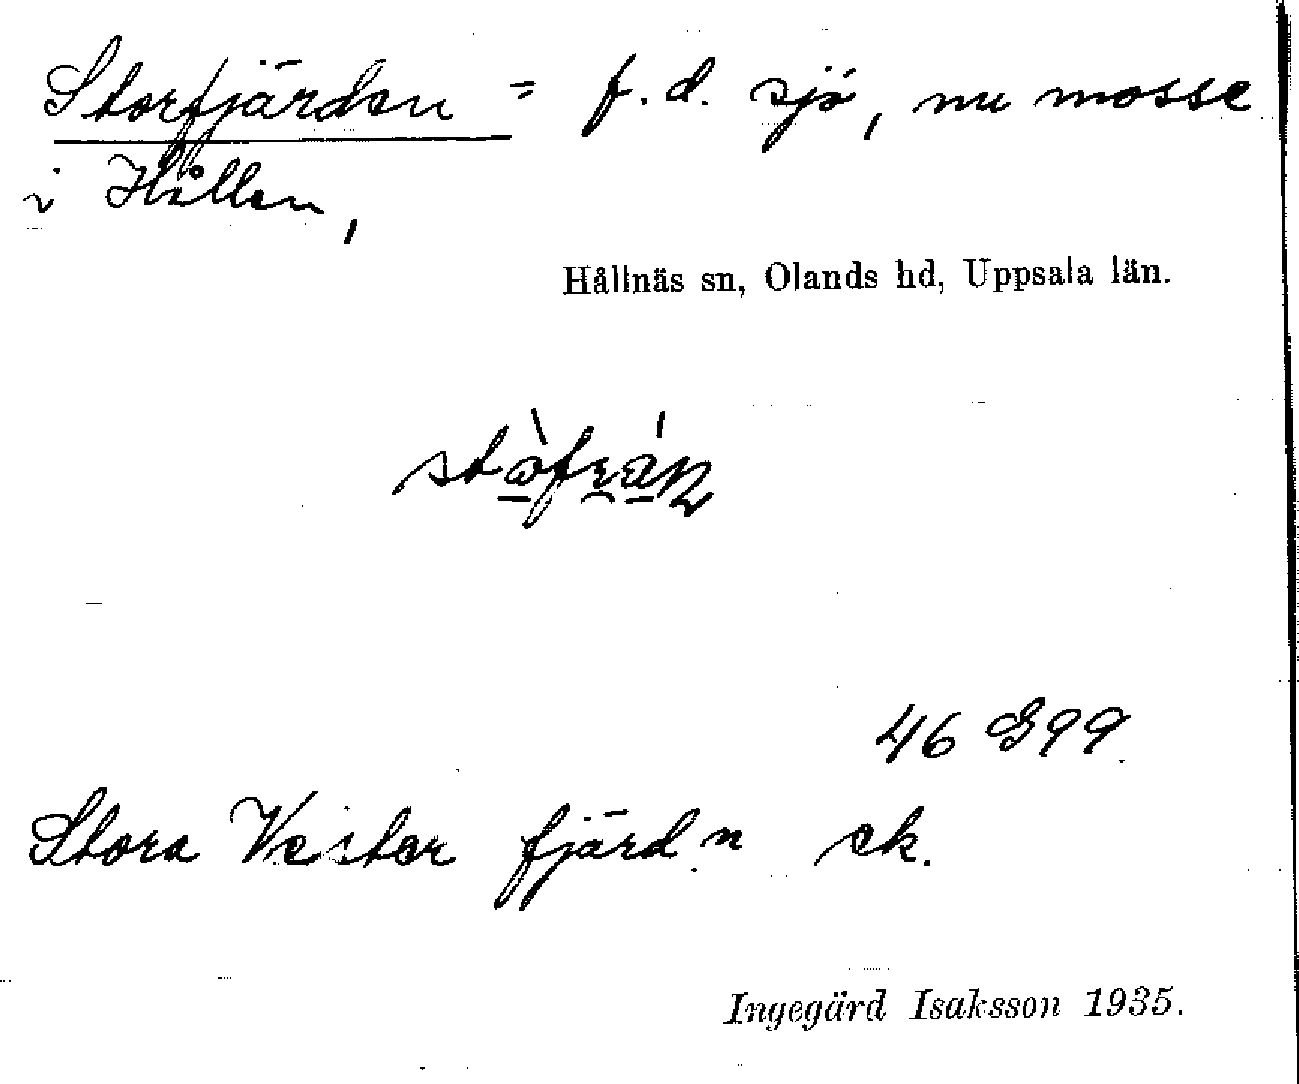 Storfjärden = f.d. sjö, nu mosse
i Hållen,
Hållnäs sn, Olands hd, Uppsala län.
46 G99
Stora Vester fjärd.n ek.
Ingegärd Isaksson 1935.